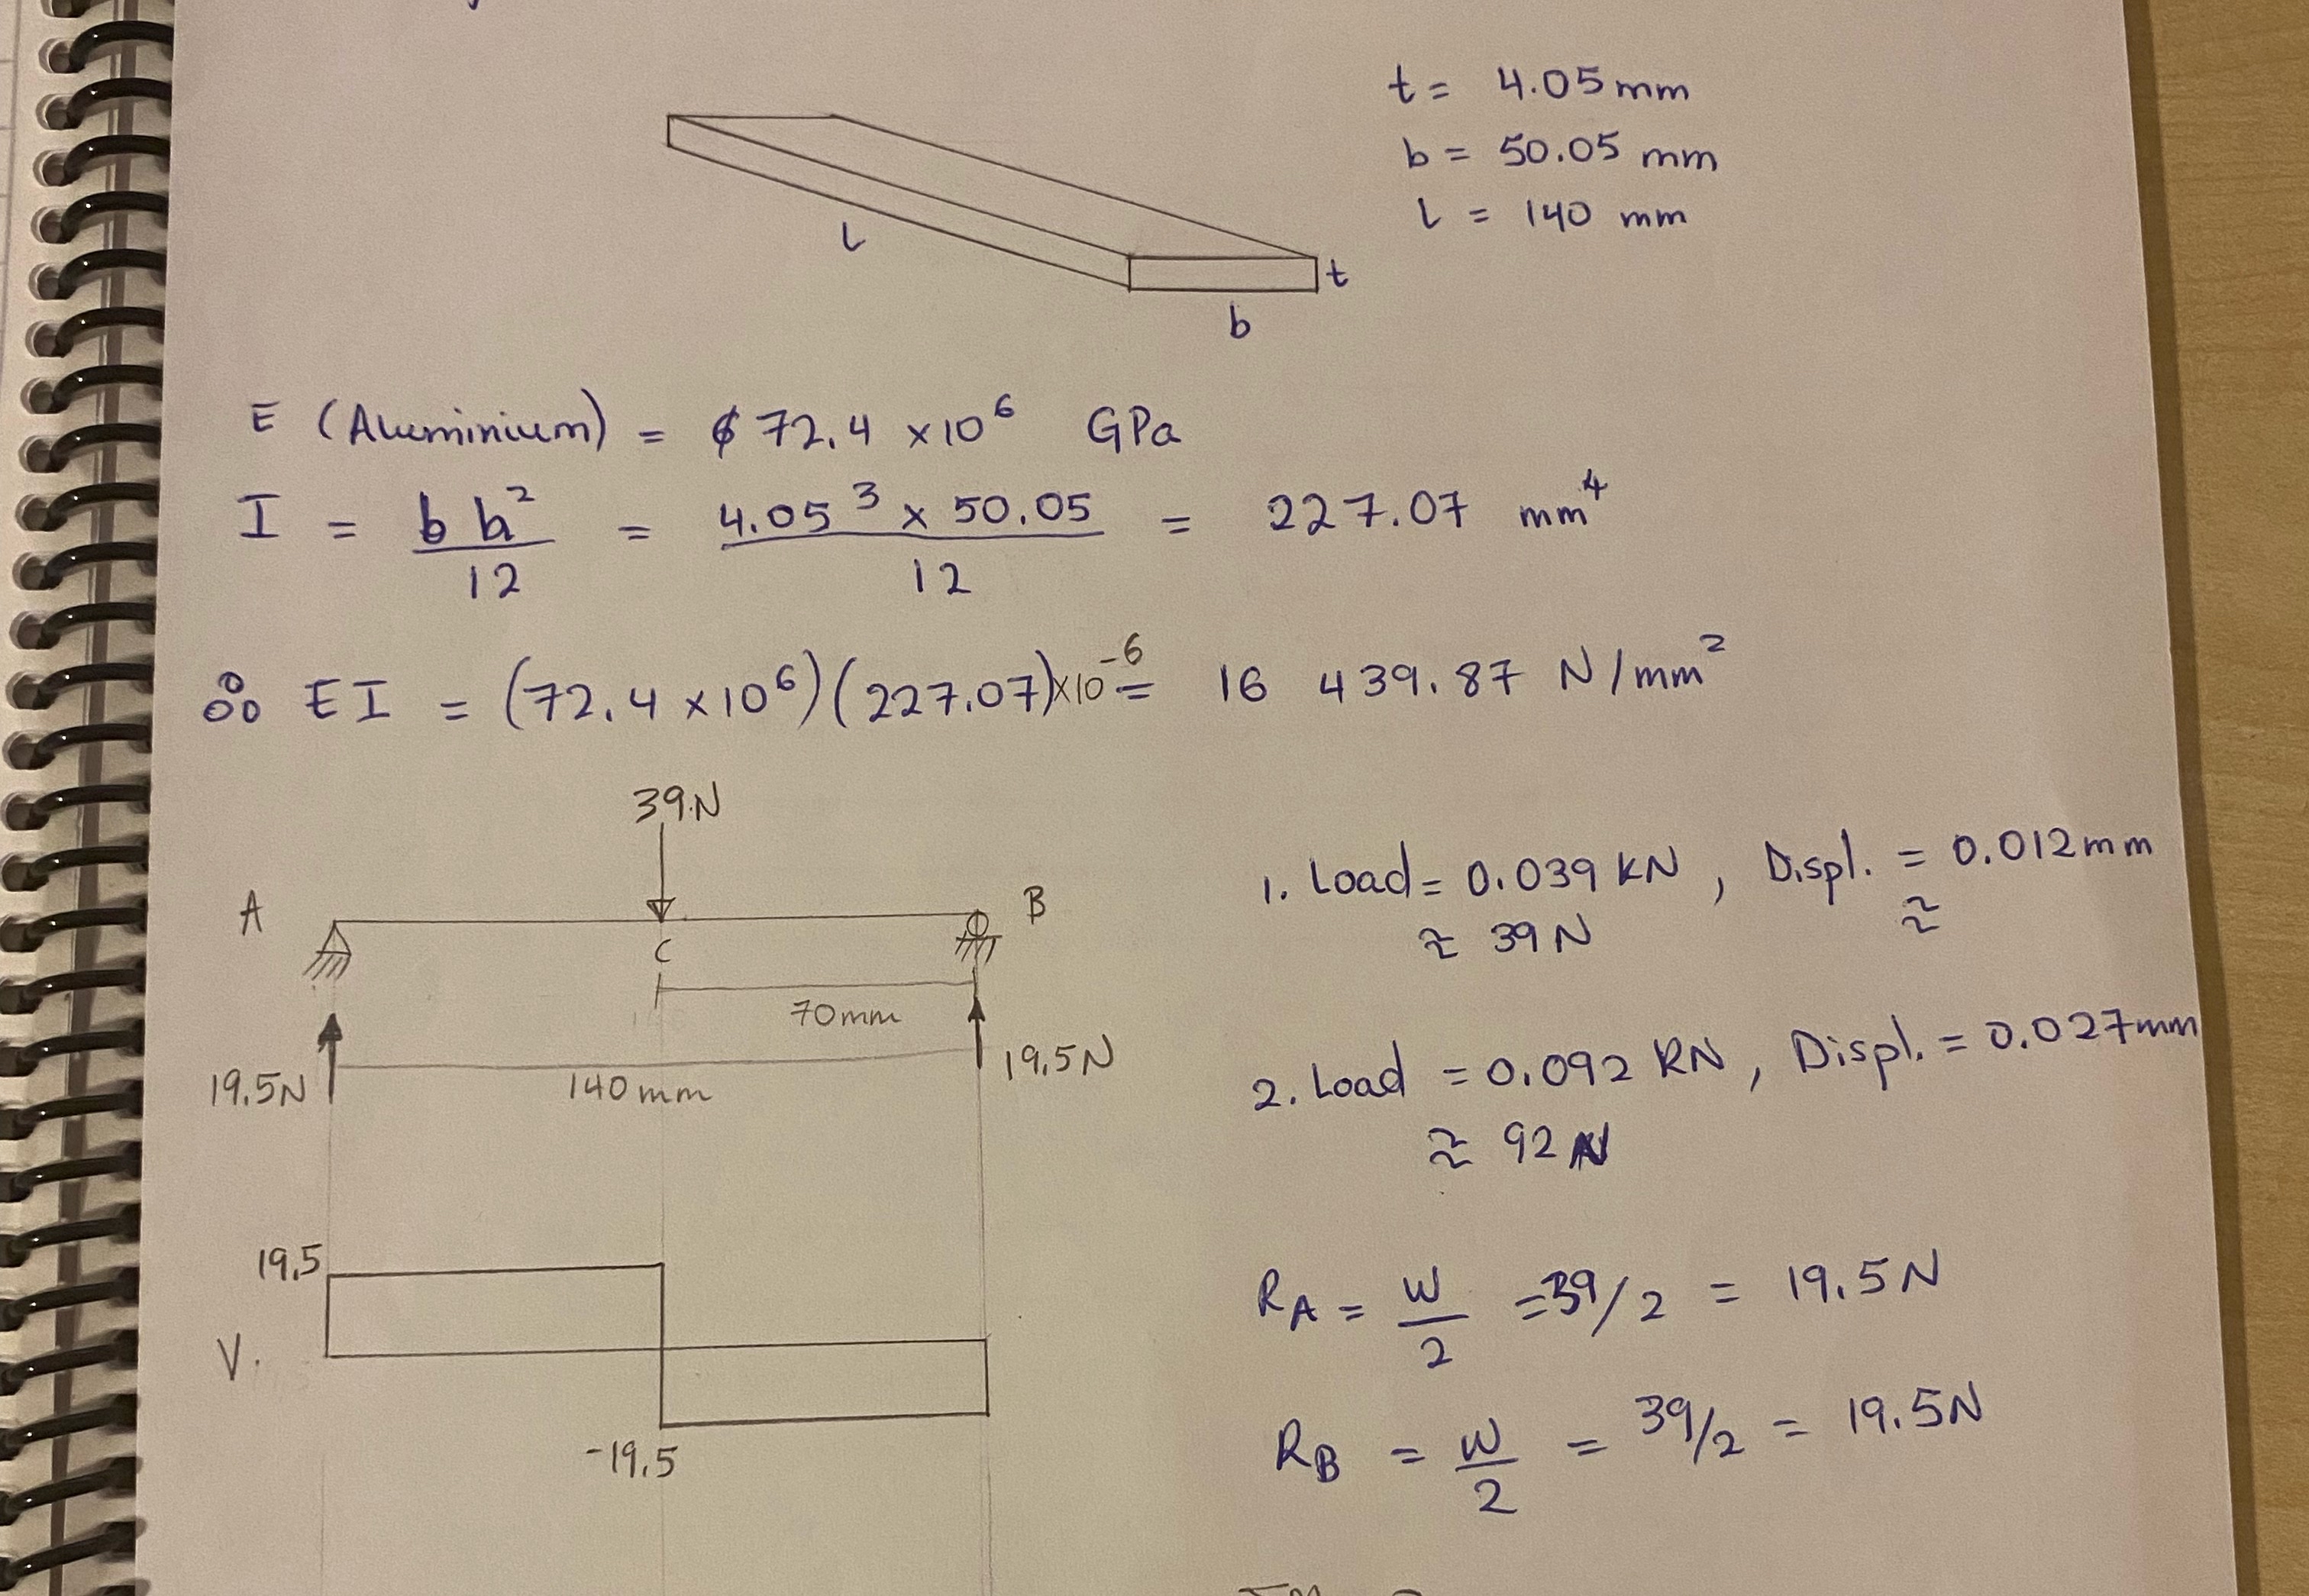 t = 4.05 mm
b = 50.05 mm
L = 140 mm
L
t
b
E (Aluminium) = 72.4 ×10⁶ GPa
I = b h² / 12 = 4.05³ × 50.05 / 12 = 227.07 mm⁴
∴ EI = (72.4 ×10⁶)(227.07)×10⁻⁶ = 16 439.87 N/mm²
39N
A
B
C
70mm
19.5N
140mm
19.5N
1. Load = 0.039 KN , Displ. = 0.012mm
≈ 39N ≈
2. Load = 0.092 KN , Displ. = 0.027mm
≈ 92N
19.5
V.
-19.5
R_A = W/2 = 39/2 = 19.5N
R_B = W/2 = 39/2 = 19.5N